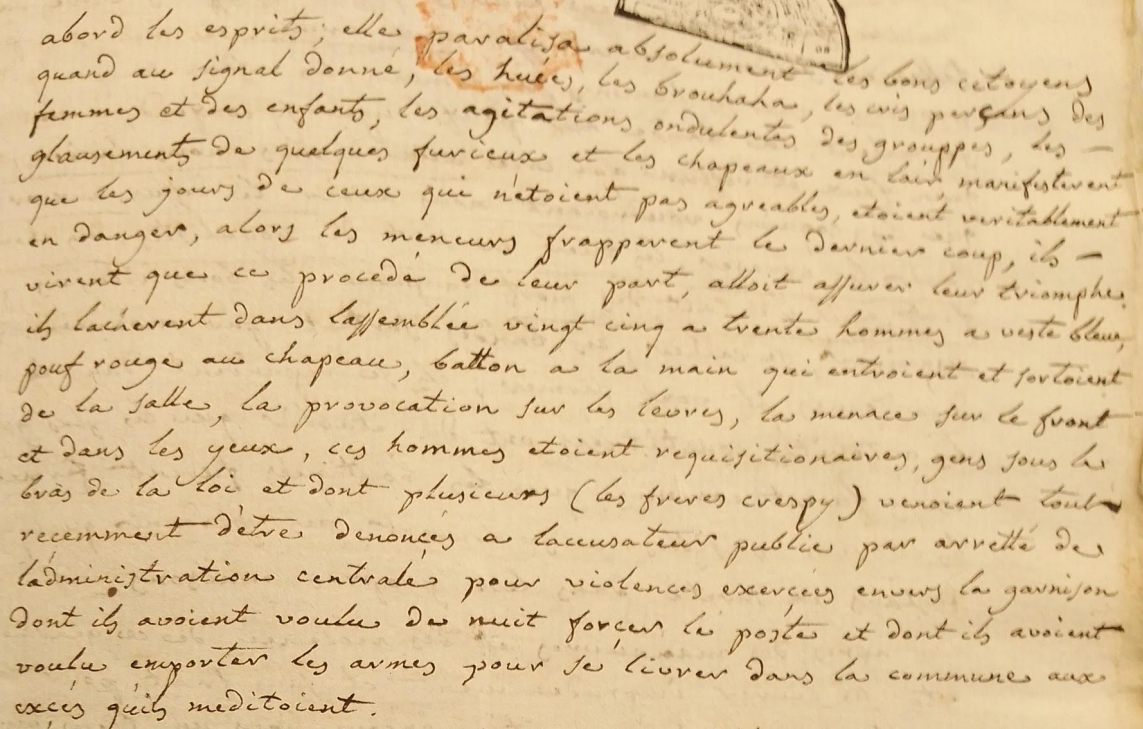 abord les esprits; elle paralisa absolument les bons citoyens
quand au signal donné, les huées, les brouhaha, les cris perçans des
femmes et des enfants, les agitations ondulentes des grouppes, les —
glausements de quelques furieux et les chapeaux en lair, manifesterent
que les jours de ceux qui n'etoient pas agreables, etoient veritablement
en danger, alors les meneurs frapperent le dernier coup, ils —
virent que ce procédé de leur part, alloit assurer leur triomphe,
ils lacherent dans lassemblée vingt cinq a trente hommes a veste bleue,
pouf rouge au chapeau, batton a la main qui entroient et sortoient
de la salle, la provocation sur les levres, la menace sur le front
et dans les yeux, ces hommes etoient requisitionaires, gens sous le
bras de la loi et dont plusieurs (les freres crespy) venoient tout
recemment d'être denoncés a laccusateur public par arretté de
ladministration centrale pour violences exercées envers la garnison
dont ils avoient voulu de nuit forçer le poste et dont ils avoient
voulu emporter les armes pour se livrer dans la commune aux
excés quils meditoient.